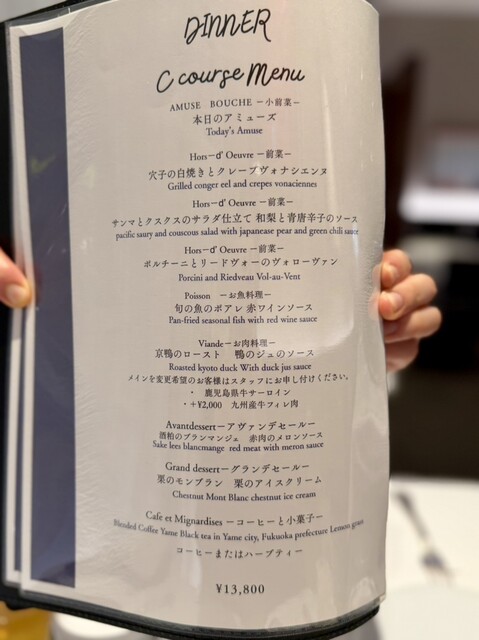 DINNER
C course Menu
AMUSE BOUCHE －小前菜－
本日のアミューズ
Today's Amuse
Hors－d' Oeuvre －前菜－
穴子の白焼きとクレープヴォナシエンヌ
Grilled conger eel and crepes vonaciennes
Hors－d' Oeuvre －前菜－
サンマとクスクスのサラダ仕立て 和梨と青唐辛子のソース
pacific saury and couscous salad with japanease pear and green chili sauce
Hors－d' Oeuvre －前菜－
ポルチーニとリードヴォーのヴォローヴァン
Porcini and Riedveau Vol-au-Vent
Poisson －お魚料理－
旬の魚のポアレ 赤ワインソース
Pan-fried seasonal fish with red wine sauce
Viande－お肉料理－
京鴨のロースト 鴨のジュのソース
Roasted kyoto duck With duck jus sauce
メインを変更希望のお客様はスタッフにお申し付けください。
・ 鹿児島県牛サーロイン
・＋¥2,000 九州産牛フィレ肉
Avantdessert－アヴァンデセール－
酒粕のブランマンジェ 赤肉のメロンソース
Sake lees blancmange red meat with meron sauce
Grand dessert－グランデセール－
栗のモンブラン 栗のアイスクリーム
Chestnut Mont Blanc chestnut ice cream
Cafe et Mignardises －コーヒーと小菓子－
Blended Coffee Yame Black tea in Yame city, Fukuoka prefecture Lemon grass
コーヒーまたはハーブティー
¥13,800